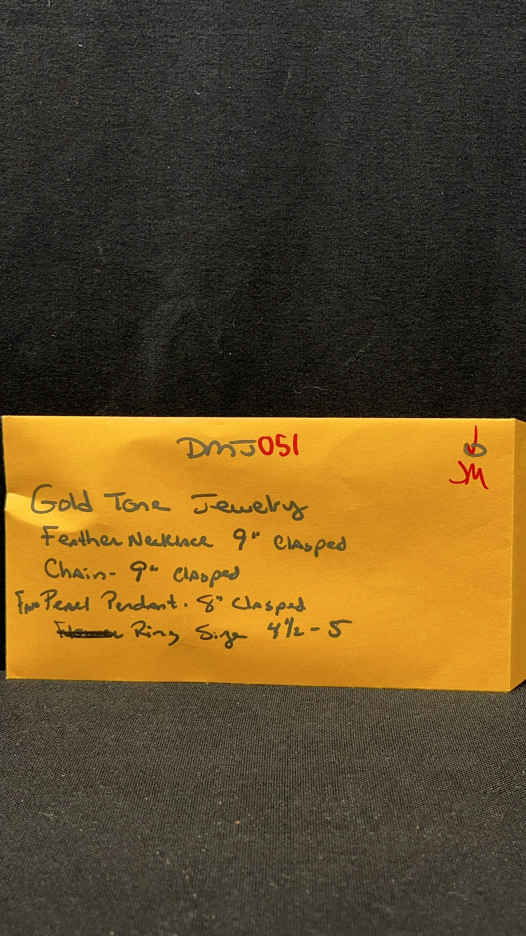 DMJ051
JM
Gold Tone Jewelry
Feather Necklace 9" Clasped
Chain - 9" Clasped
Pearl Pendant. 8" Clasped
Ring Size 4½ - 5